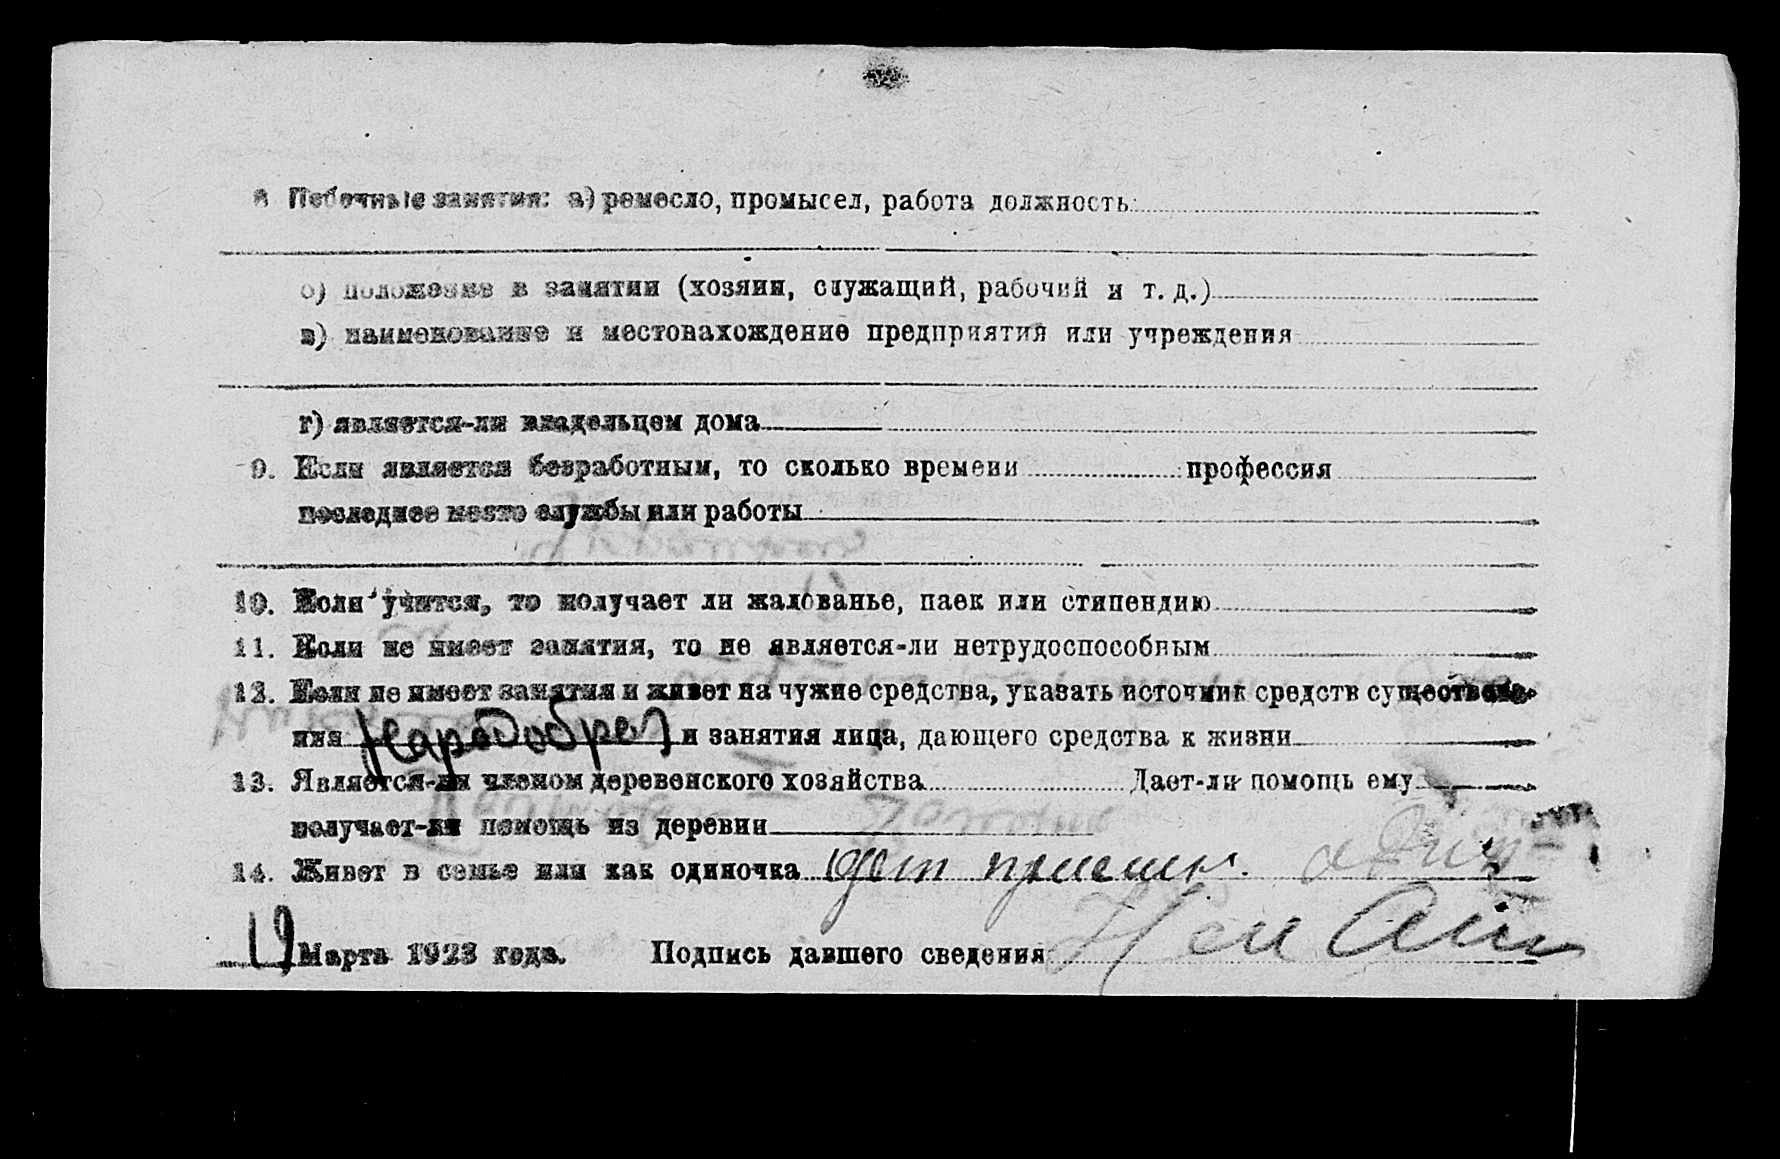 8 Побочные занятия: а) ремесло, промысел, работа должность:
б) положение в занятии (хозяин, служащий, рабочий и т. д.)
в) наименование и местонахождение предприятия или учреждения
г) является-ли владельцем дома
9. Если является безработным, то сколько времени профессия
последнее место службы или работы
10. Если учится, то получает ли жалованье, паек или стипендию
11. Если не имеет занятия, то не является-ли нетрудоспособным
12. Если не имеет занятия и живет на чужие средства, указать источник средств существова-
ния Наробобраз и занятия лица, дающего средства к жизни
13. Является-ли членом деревенского хозяйства Дает-ли помощь ему
получает-ли помощь из деревни
14. Живет в семье или как одиночка дет приемн.
19 Марта 1923 года. Подпись давшего сведения